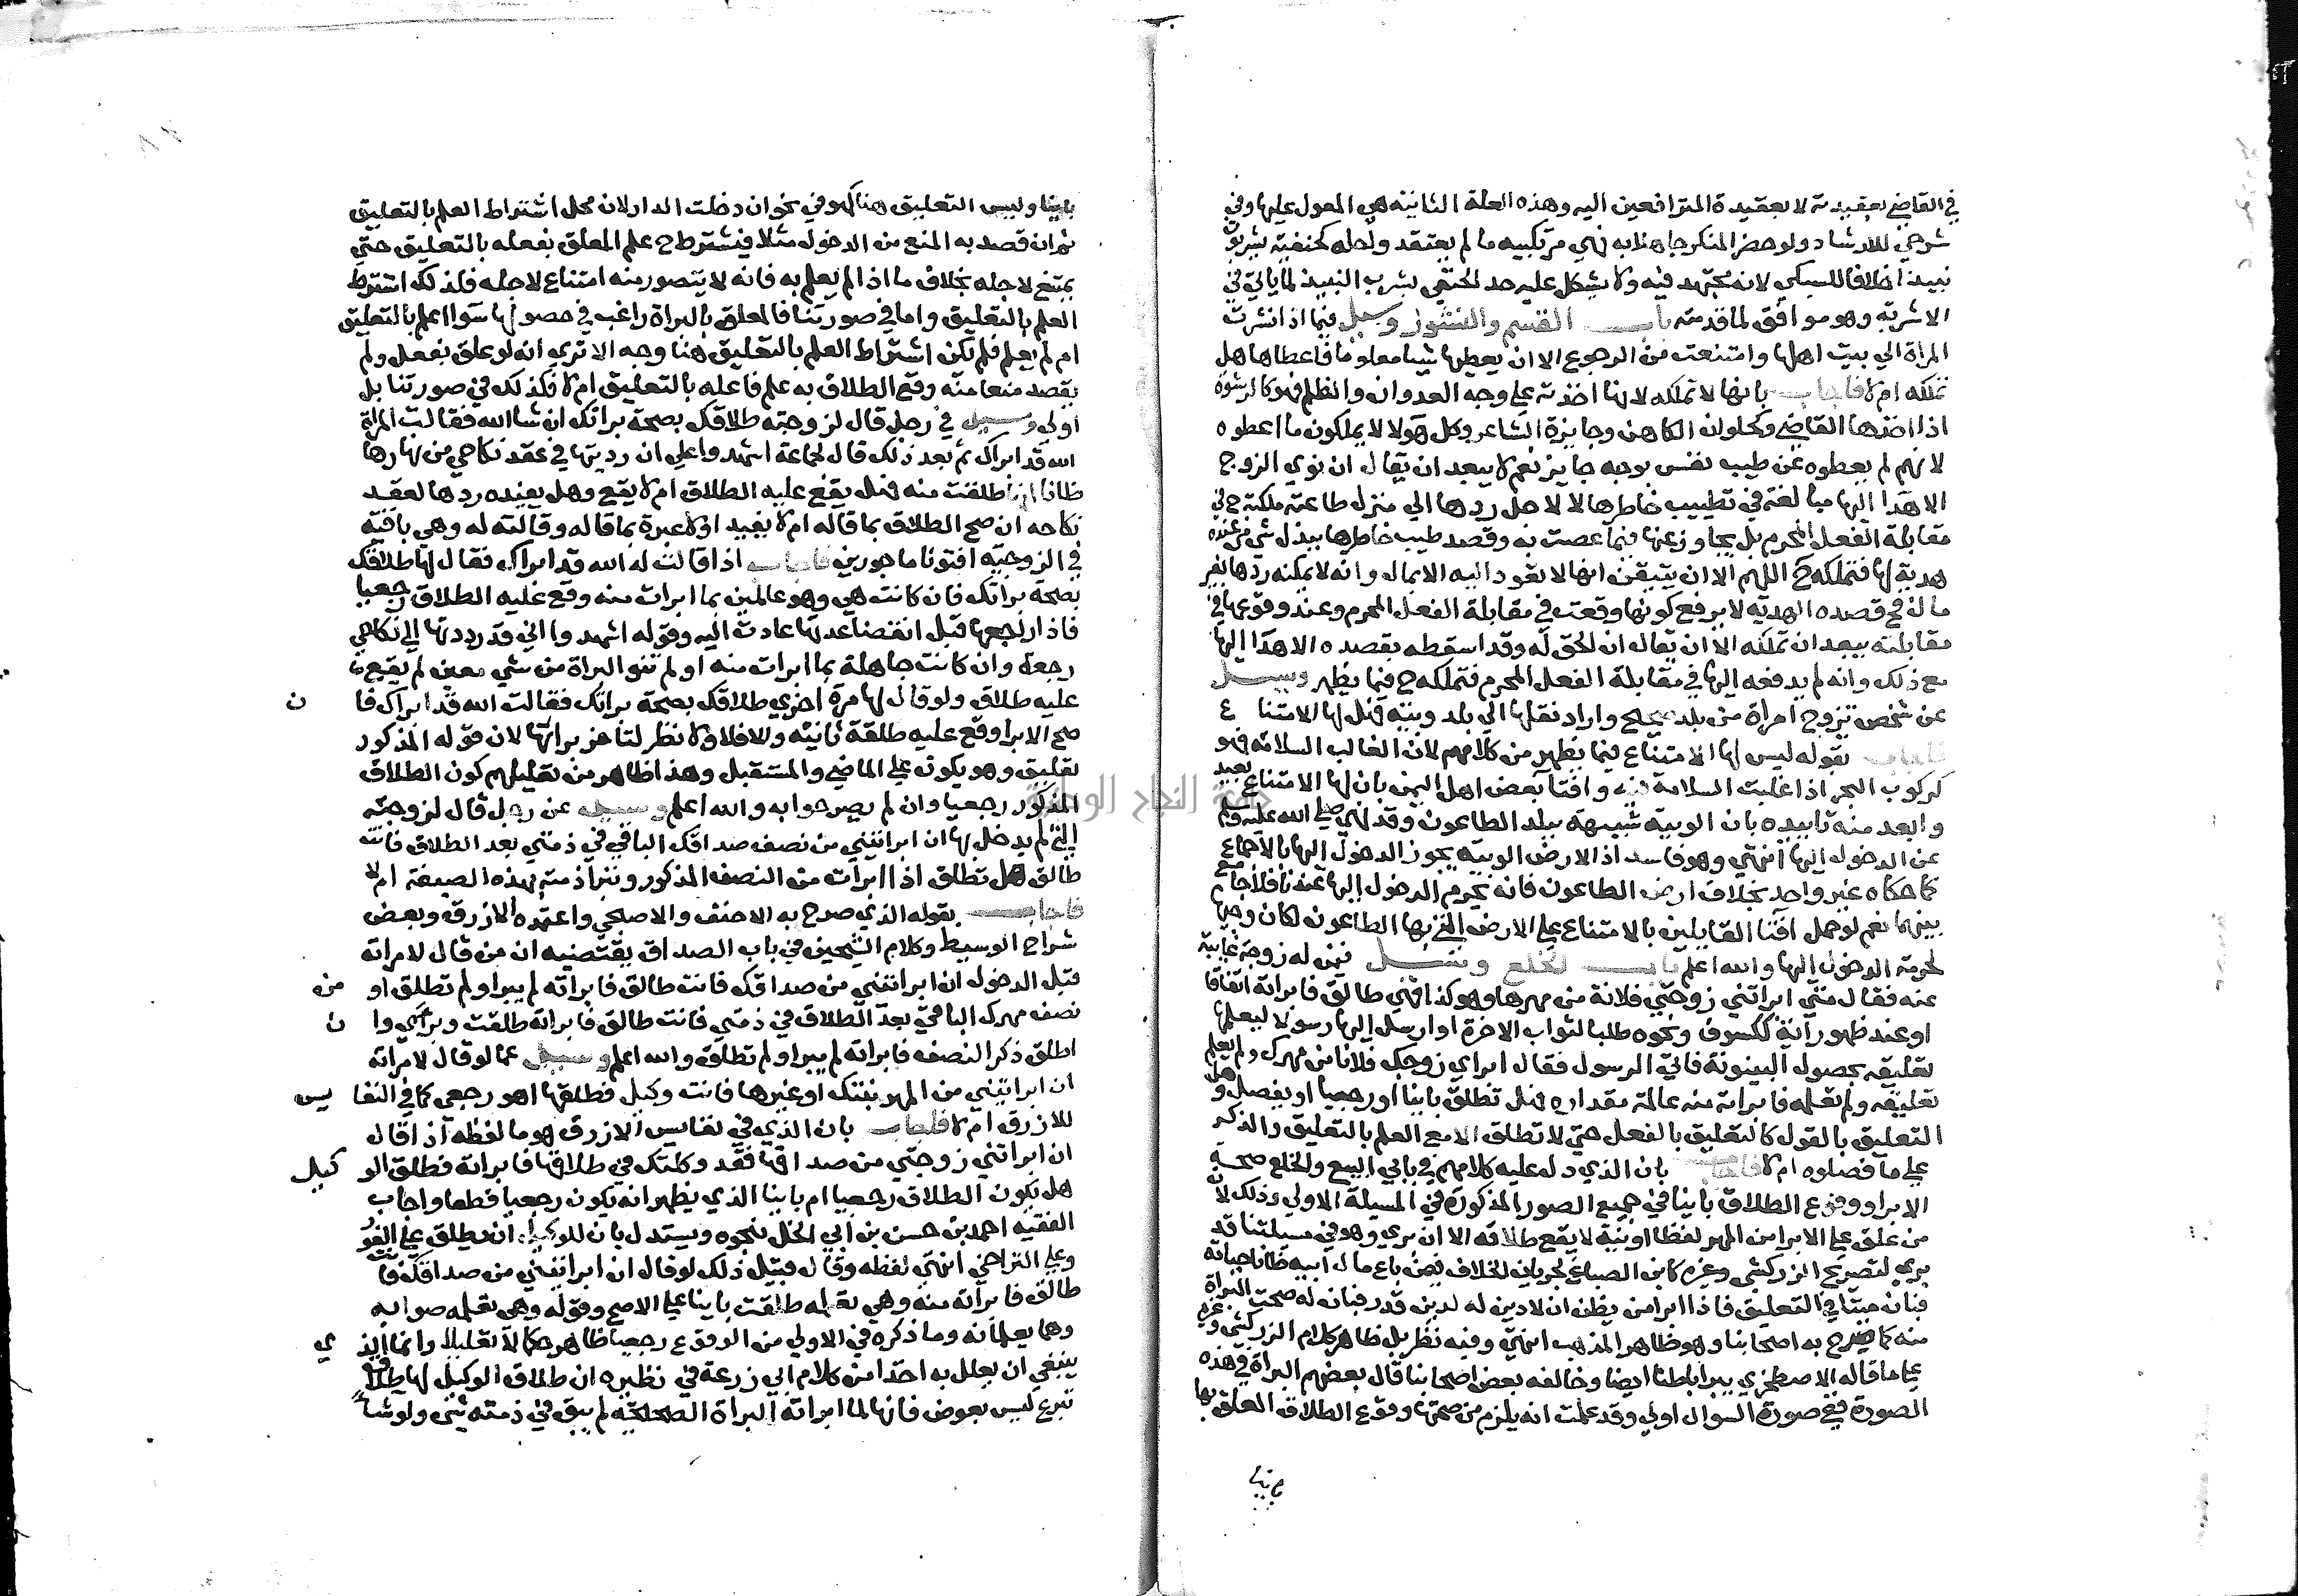 في القاضي بعقيدته لا بعقيدة المترافعين اليه وهذه العلة الثانية هي المعول عليها وفي
شرحي للارشاد ولو حضر المنكر جاهلا به نهي مرتكبيه ما لم يعتقد ولحله كحنفية بشربه
نبيذا خلافا للسبكي لانه مجتهد فيه ولا يشكل عليه حد الحنفي بشرب النبيذ لما ياتي في
الاشربة وهو موافق لما قدمته باب القسم والنشوز وسيل فيما اذا نشزت
المراة الي بيت اهلها وامتنعت من الرجوع الا ان يعطيها شيا معلوما فاعطاها هل
تملكه ام لا فاجاب بانها لا تملكه لانها اخذته علي وجه العدوان والظلم فهو كالرشوة
اذا اخذها القاضي وكحلوان الكاهن وجايزة الشاعر وكل هولا لا يملكون ما اعطوه
لانهم لم يعطوه عن طيب نفس بوجه جايز نعم لا يبعد ان يقال ان نوي الزوج
الاهدا اليها مبالغة في تطييب خاطرها لا لاجل ردها الي منزل طاعته ملكته ح لا في
مقابلة الفعل المحرم بل تجاوز عنها فيما عصت به وقصد طيب خاطرها ببذل شي من عنده
هدية لها فتملكه ح اللهم الا ان يتيقن انها لا تعود اليه الا بمال وانه لا يمكنه ردها بغير
مال فح قصده الهدية لا يرفع كونها وقعت في مقابلة الفعل المحرم وعند وقوعها في
مقابلته يبعد ان تملكه الا ان يقال ان الحق له وقد اسقطه بقصده الاهدا اليها
مع ذلك وانه لم يدفعه اليها في مقابلة الفعل المحرم فتملكه ح فيما يظهر وسيل
عن شخص تزوج امراة من بلد صحيح واراد نقلها الي بلد وبية فهل لها الامتناع
فاجاب بقوله ليس لها الامتناع فيما يظهر من كلامهم لان الغالب السلامة فهو
كركوب البحر اذا غلبت السلامة فيه وافتا بعض اهل اليمن بان لها الامتناع بعيد
وابعد منه تاييده بان الوبية شبيهة ببلد الطاعون وقد نهي صلي الله عليه وسلم
عن الدخول اليها انتهي وهو فاسد اذ الارض الوبية يجوز الدخول اليها بالاجماع
كما حكاه غير واحد بخلاف ارض الطاعون فانه يحرم الدخول اليها عند نافلا جامع
بينهما نعم لو حمل افتا القايلين بالامتناع علي الارض التي بها الطاعون لكان وجيها
لحرمة الدخول اليها والله اعلم باب الخلع وسيل فيمن له زوجة غايبة
عنه فقال متي ابراتني زوجتي فلانة من مهرها وهو كذا فهي طالق فابراته اتفاقا
او عند ظهور اية ككسوف ونحوه طلبا لثواب الاخرة او ارسل اليها رسولا ليعلمها
تعليقه بحصول البينونة فاتي الرسول فقال ابراي زوجك فلانا من مهرك ولم يعلم
تعليقه ولم تعلمه فابراته منه عالمة مقداره فهل تطلق باينا او رجعيا او يفصل وهل
التعليق بالقول كالتعليق بالفعل حتي لا تطلق الا مع العلم بالتعليق والذكر
علي ما فصلوه ام لا فاجاب بان الذي دل عليه كلامهم في بابي البيع والخلع صحة
الابرا ووقوع الطلاق باينا في جميع الصور المذكورة في المسيلة الاولي وذلك لان
من علق علي الابرا من المهر لفظا او نية لا يقع طلاقه الا ان بري وهو في مسيلتنا قد
بري لتصريح الزركشي وغيره كابن الصباغ بجريان الخلاف فيمن باع مال ابيه ظانا حياته
فبان ميتا في التعليق فاذا ابرا من يظن ان لا دين له لدين قد رفبان له صحت البراة
منه كما صرح به اصحابنا وهو ظاهر المذهب انتهي وفيه نظر بل ظاهر كلام الزركشي وغيره
علي ما قاله الاصطخري يبرا باطنا ايضا وخالفه بعض اصحابنا قال بعضهم البراة في هذه
الصورة ففي صورة السوال اولي وقد علمت انه يلزم من صحتها وقوع الطلاق المعلق بها
باينا
باينا وليس التعليق هنا كهو في نحو ان دخلت الدار لان محل اشتراط العلم بالتعليق
ثم ان قصد به المنع من الدخول مثلا فيشترط ح علم المعلق بفعله بالتعليق حتي
يمتنع لاجله بخلاف ما اذا لم يعلم به فانه لا يتصور منه امتناع لاجله فلذلك اشترط
العلم بالتعليق واما في صورتنا فالمعلق بالبراة راغب في حصولها سوا اعلم بالتعليق
ام لم يعلم فلم يكن اشتراط العلم بالتعليق هنا وجه الا تري انه لو علق بفعل ولم
يقصد منعا منه وقع الطلاق به علم فاعله بالتعليق ام لا فكذلك في صورتنا بل
اولي وسيل في رجل قال لزوجته طلاقك بصحة براتك ان شا الله فقالت المراة
الله قد ابراك ثم بعد ذلك قال لجماعة اشهدوا علي ان رديتها في عقد نكاحي من نهارها
ظانا انها طلقت منه فهل يقع عليه الطلاق ام لا يقع وهل يفيده ردها لعقد
نكاحه ان صح الطلاق بما قاله ام لا يفيد اذ لا عبرة بما قاله وقالته له وهي باقية
في الزوجية افتونا ماجورين فاجاب اذا قالت له الله قد ابراك فقال لها طلاقك
بصحة براتك فان كانت هي وهو عالمين بما ابرات منه وقع عليه الطلاق رجعيا
فاذا راجعها قبل انقضا عدتها عادت اليه وقوله اشهدوا اني قد رددتها الي نكاحي
رجعة وان كانت جاهلة بما ابرات منه او لم تنو البراة من شي معين لم يقع
عليه طلاق ولو قال لها مرة اخري طلاقك بصحة براتك فقالت الله قد ابراك فان
صح الابرا وقع عليه طلقة ثانية والا فلا ولا نظر لتاخر براتها لان قوله المذكور
تعليق وهو يكون علي الماضي والمستقبل وهذا ظاهر من تعليلهم كون الطلاق
المذكور رجعيا وان لم يصرحوا به والله اعلم وسيل عن رجل قال لزوجته
التي لم يدخل بها ان ابراتني من نصف صداقك الباقي في ذمتي بعد الطلاق فانت
طالق هل تطلق اذا ابرات من النصف المذكور وتبرا ذمته بهذه الصيغة ام لا
فاجاب بقوله الذي صرح به الاحنف والاصبحي واعتمده الازرق وبعض
شراح الوسيط وكلام الشيخين في باب الصداق يقتضيه ان من قال لامراته
قبل الدخول ان ابراتني من صداقك فانت طالق فابراته لم يبرا ولم تطلق او من
نصف مهرك الباقي بعد الطلاق في ذمتي فانت طالق فابراته طلقت وبري وان
اطلق ذكر النصف فابراته لم يبرا ولم تطلق والله اعلم وسيل عما لو قال لامراته
ان ابراتيني من المهر بنتك او غيرها فانت وكيل فطلقها اهو رجعي كما في النفايس
للازرق ام لا فاجاب بان الذي في نفايس الازرق هو ما لفظه اذا قال
ان ابراتني زوجتي من صداقها فقد وكلتك في طلاقها فابراته فطلق الوكيل
هل يكون الطلاق رجعيا ام باينا الذي يظهر انه يكون رجعيا قطعا واجاب
الفقيه احمد بن حسن بن ابي الخل بنحوه ويستدل بان للوكيل ان يطلق علي الفور
وعلي التراخي انتهي لفظه وقال قبيل ذلك لو قال ان ابراتيني من صداقك فانت
طالق فابراته منه وهي تعلمه طلقت باينا علي الاصح وقوله وهي تعلمه صوابه
وهما يعلمانه وما ذكره في الاولي من الوقوع رجعيا ظاهر حكما لا تعليلا وانما الذي
ينبغي ان يعلل به اخذا من كلام ابي زرعة في نظيره ان طلاق الوكيل لها طلاق
تبرع ليس بعوض فانها لما ابراته البراة الصحيحة لم يبق في ذمته شي ولو شا